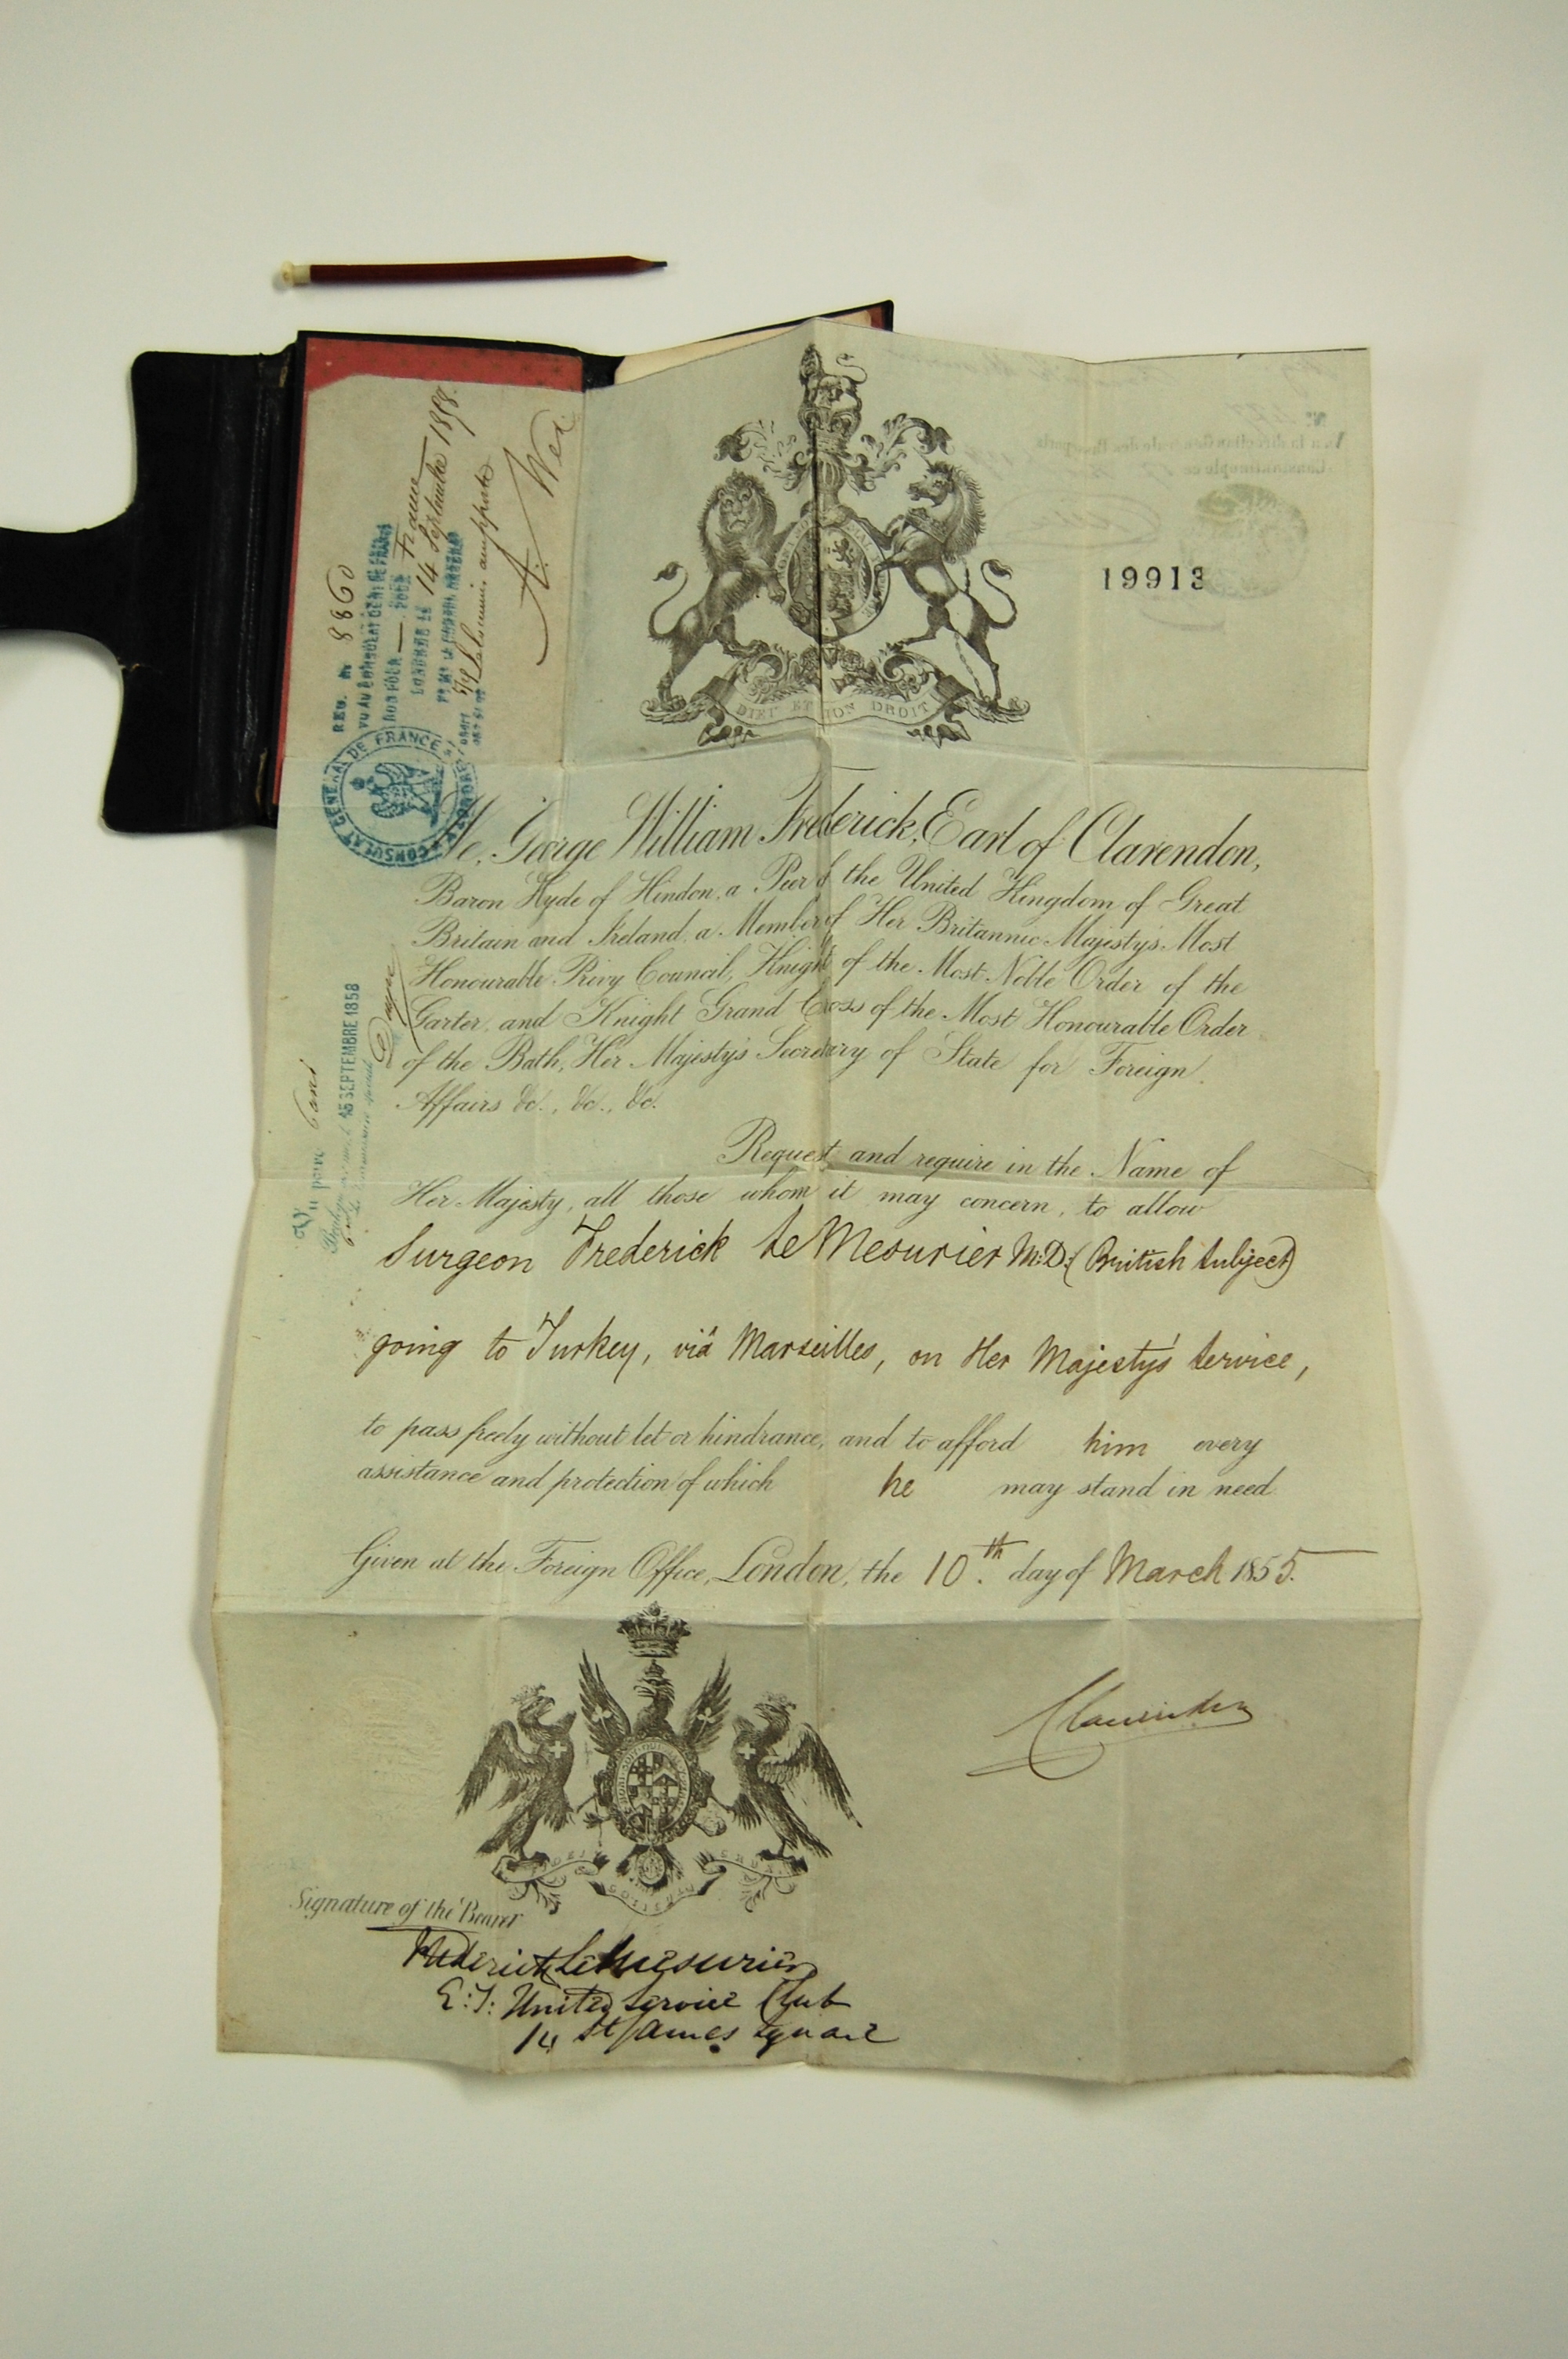 REG. No 8860
VU AU CONSULAT GENERAL DE FRANCE
BON POUR — POUR France
LONDRES LE 14 Septembre 1858.
A. Wei
CONSULAT GENERAL DE FRANCE LONDRES
DIEU ET MON DROIT
19913
We, George William Frederick, Earl of Clarendon,
Baron Hyde of Hindon, a Peer of the United Kingdom of Great
Britain and Ireland, a Member of Her Britannic Majesty's Most
Honourable Privy Council, Knight of the Most Noble Order of the
Garter, and Knight Grand Cross of the Most Honourable Order
of the Bath, Her Majesty's Secretary of State for Foreign
Affairs &c., &c., &c.
Vu pour Paris
15 SEPTEMBRE 1858
Request and require in the Name of
Her Majesty, all those whom it may concern, to allow
Surgeon Frederick Le Mesurier M:D: (British Subject)
going to Turkey, viâ Marseilles, on Her Majesty's Service,
to pass freely without let or hindrance, and to afford him every
assistance and protection of which he may stand in need.
Given at the Foreign Office, London, the 10th. day of March 1855.
Clarendon
Signature of the Bearer
Frederick LeMesurier
E: I: United Service Club
14 St James Square